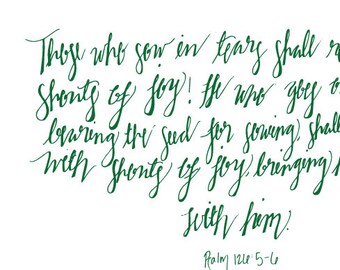 Those who sow in tears shall r
shouts of joy! He who goes o
bearing the seed for sowing, shall
with shouts of joy, bringing h
with him.
Psalm 126:5-6